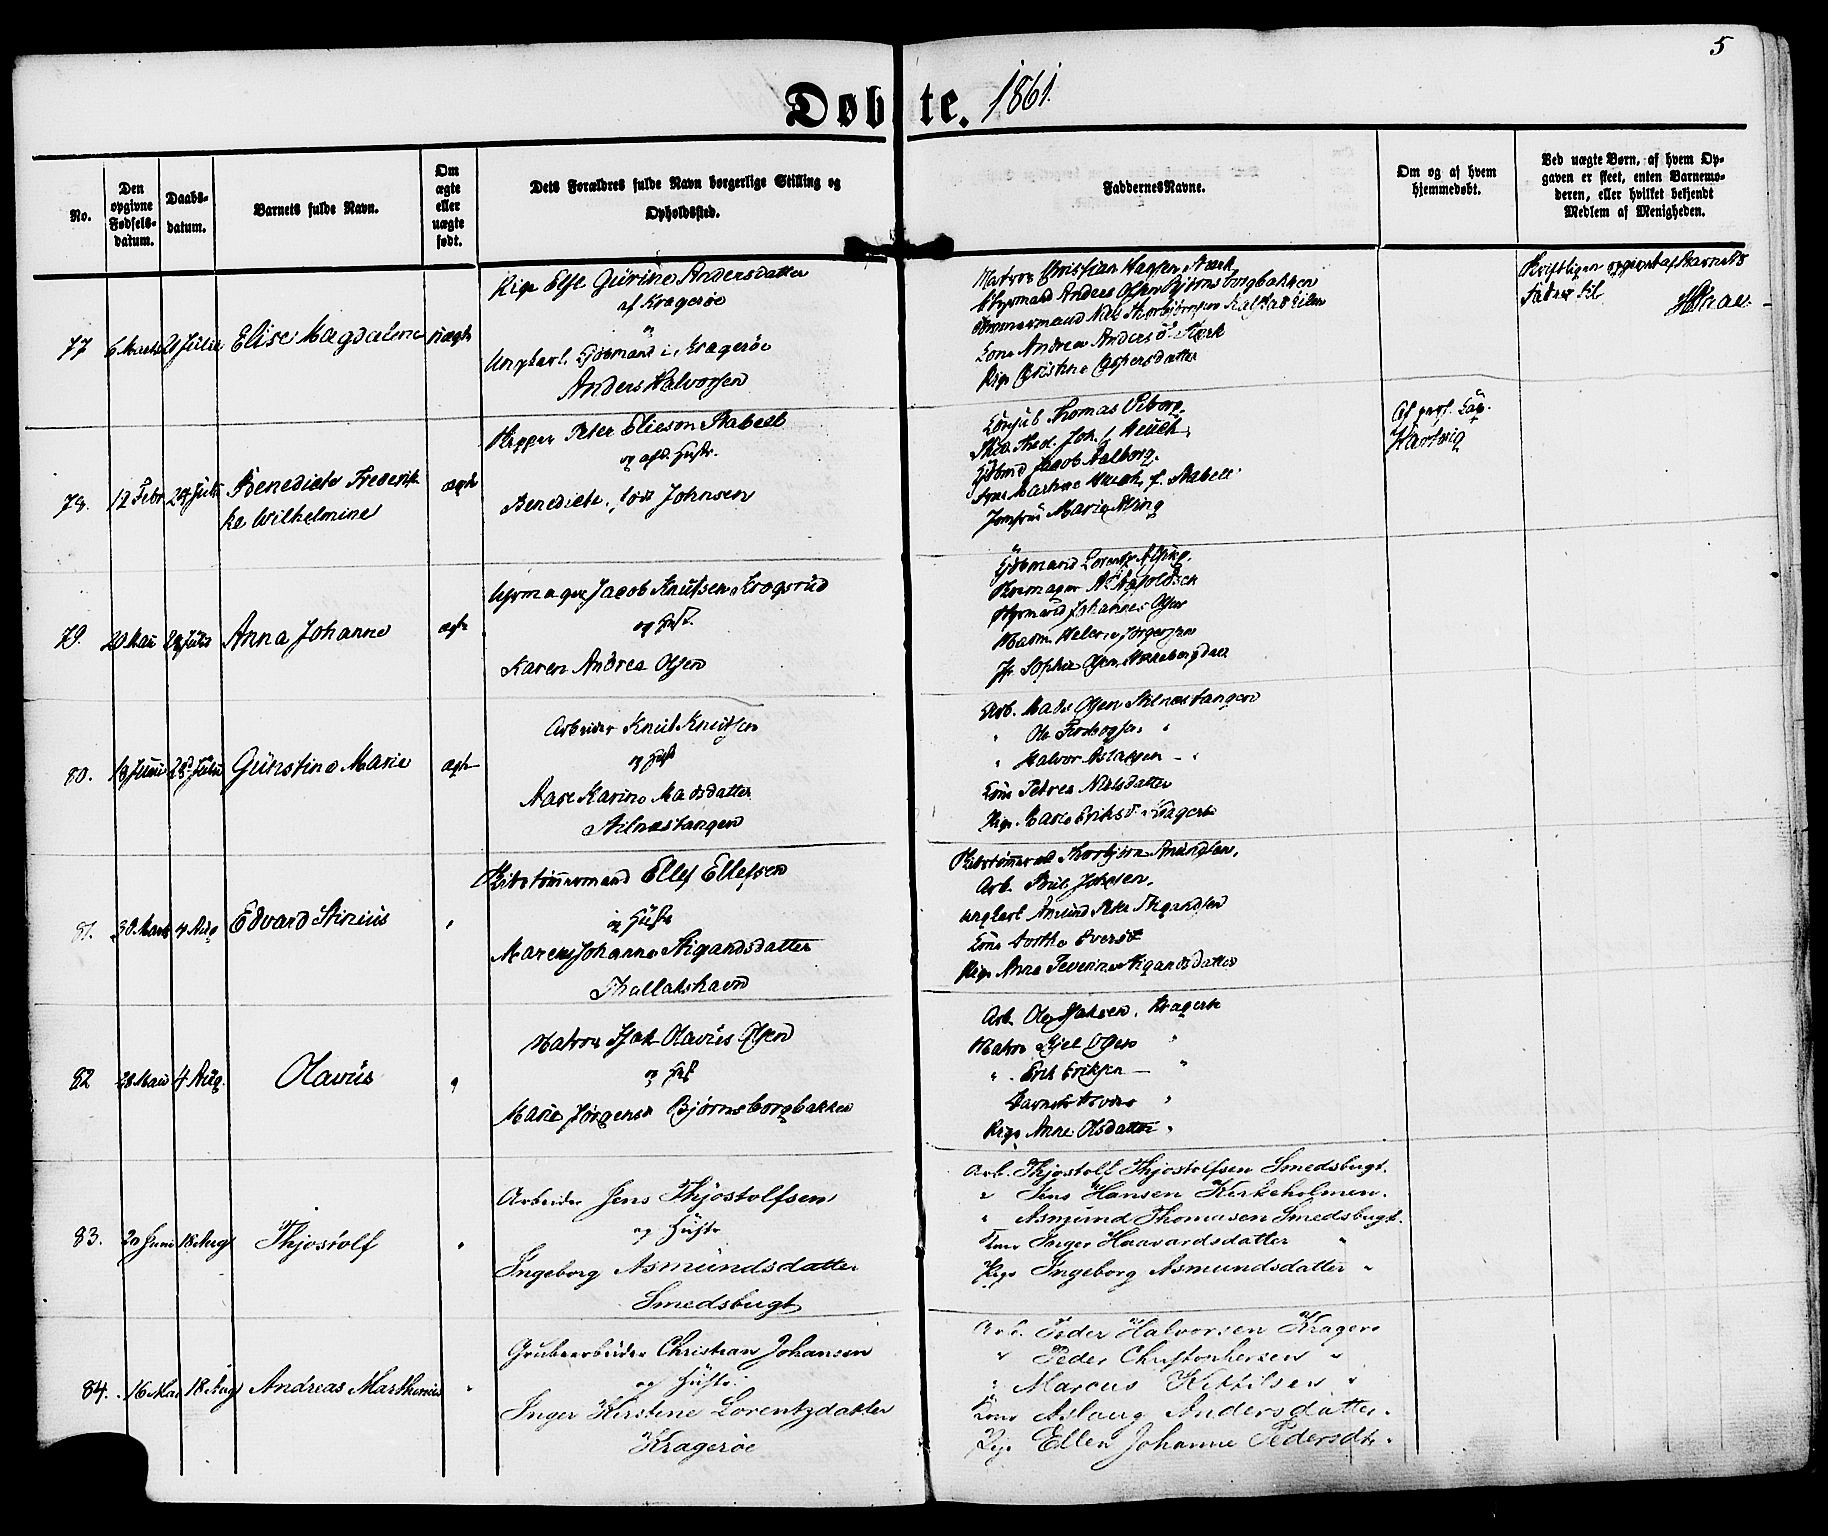 5
Døbte. 1861.
No.
Den opgivne Fødsels-datum.
Daabs-datum.
Barnets fulde Navn.
Om ægte eller uægte født.
Dets Forældres fulde Navn borgerlige Stilling og Opholdssted.
Faddernes Navne.
Om og af hvem hjemmedøbt.
Ved uægte Børn, af hvem Opgaven er skeet, enten Barnemoderen, eller hvilket bekjendt Medlem af Menigheden.
77 6 Marts 21 Julii Elise Magdalene uægte
Pige Else Gurine Andersdatter
af Kragerøe
Ungkarl, Kjøbmand i Kragerøe
Anders Halvorsen
Matros Christian Hansen Stærk
Styrmand Anders Olsen Bjørnsborgbakken
Tømmermand Niels Thorbjørnsen
Kone Andrea Andersd. Stærk
Pige Christine Caspersdatter
Skriftligen opgivet af Barnets
Fader til
78. 12 Febr 28 Julii Benedicte Frederik-
ke Wilhelmine
ægte
Skipper Peter Elieson Stabell
og afd. Hustr.
Benedicte, født Johnsen
Consul Thomas Wiborg.
Stud. Theol. Joh. J. Heuch.
Kjøbmd Jacob Aalborg.
Frue Martine Heuch, f. Stabell
Jomfru Marie Bing
Af
Hartvig
79. 20 Mai 28 Julii Anna Johanne ægte
Uhrmager Jacob Knutsen Krogsrud
og Hust.
Karen Andrea Olsen
Kjøbmand Lorentz
Styrmand Johannes Olsen
Madm Helene Jørgensen
Jfr Sophie Olsen
80. 18 Junii 28 Julii Gunstine Marie ægte
Arbeider Knut Knutsen
og Hust
Aase Karine Madsdatter
Stilnæstangen
Arb. Mads Olsen Stilnæstangen
" Ole "
" Halvor Aslaksen "
Kone Petrea Nielsdatter
Pige Maren Eriksd. Kragerøe
81. 30 Marts 4 Aug Edvard Stinius "
Skibstømmermand Ellef Ellefsen
og Hustr
Maren Johanne Stigandsdatter
Thallakshavn
Skibstømmermd Thorbjørn Amundsen,
Arb.
Ungkarl Amund Peter Stigandsen
Kone Dorthe Iversd
Pige Anne Severine Stigandsdatter
82 28 Mai 4 Aug. Olavus "
Matros Isak Olavus Olsen
og Hust
Marie Jørgensd Bjørnsborgbakken
Arb. Ole Isaksen, Kragerøe
Matros Kjel Olsen "
" Erik Eriksen "
Barnets "
Pige Anne Olsdatter "
83. 20 Juni 18 Aug Thjostolf "
Arbeider Jens Thjostolfsen
og Hustr
Ingeborg Asmundsdatter
Smedsbugt
Arb. Thjostolf Thjostolfsen Smedsbugt.
" Jens Hansen Kirkeholmen.
" Asmund Thomasen Smedsbugt.
Kone Inger Haavardsdatter "
Pige Ingeborg Asmundsdatter "
84. 16 Mai 18 Aug Andreas Marthinius "
Grubearbeider Christian Johansen
og Hustr.
Inger Kirstine Lorentzdatter
Kragerøe
Arb. Peder Halvorsen Kragerø
" Peder Christophersen "
" Marcus Kittilsen "
Kone Aslaug Andersdatter "
Pige Ellen Johanne Pedersdtr "